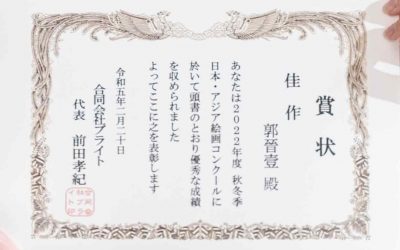 賞状
佳作
郭晉壹 殿
あなたは2022年度 秋冬季
日本・アジア絵画コンクールに
於いて頭書のとおり優秀な成績
を収められました
よってここに之を表彰します
令和五年二月二十日
合同会社ブライト
代表 前田孝紀